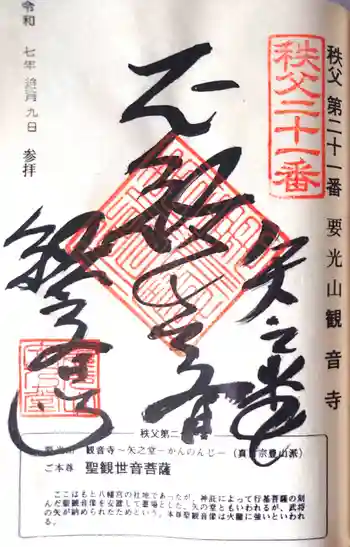 秩父 第二十一番 要光山 観音寺
秩父二十一番
矢之堂
正観世音
観音寺
令和 七年 月九日 参拝
秩父第二
要光山 観音寺〜矢之堂−かんのんじ−(真言宗豊山派)
ご本尊 聖観世音菩薩
ここはもと八幡宮の社地であったが、神託によって行基菩薩の刻
んだ聖観音像を安置して霊場とした。矢の堂ともいわれるが、武将
の矢が納められたためという。本尊聖観音像は火難に強いといわれ
る。